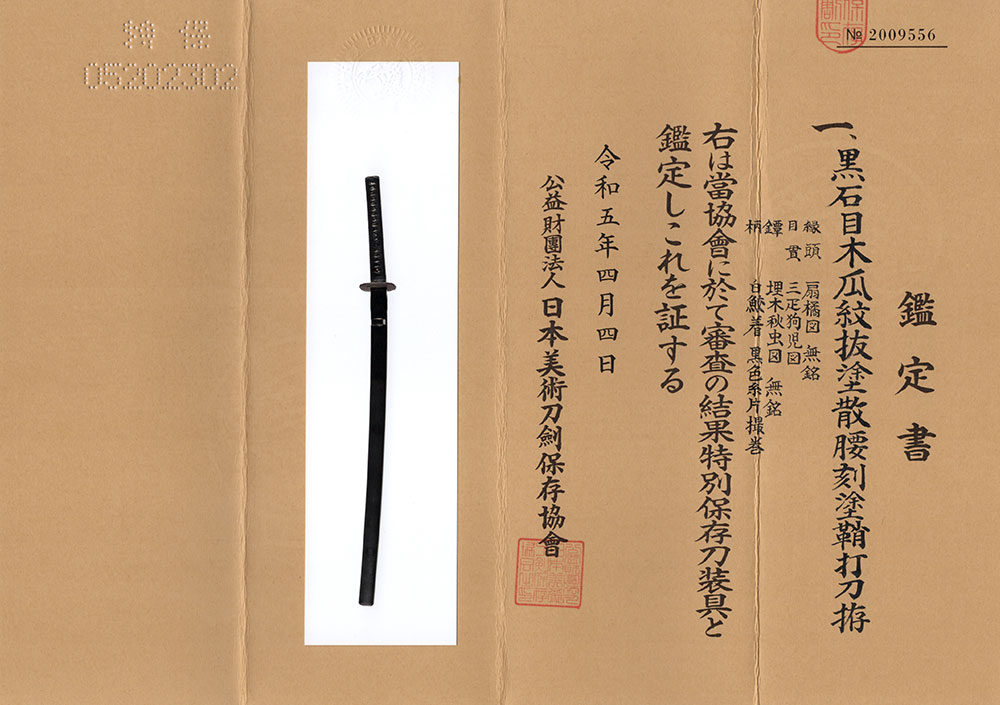 № 2009556
鑑定書
一、黒石目木瓜紋抜塗散腰刻塗鞘打刀拵
縁頭 扇橘図 無銘
目貫 三疋狗児図
鐔 埋木秋虫図 無銘
柄 白鮫着 黒色系片撮巻
右は當協會に於て審査の結果特別保存刀装具と
鑑定しこれを証する
令和五年四月四日
公益財團法人 日本美術刀劍保存協會
特保
05202302